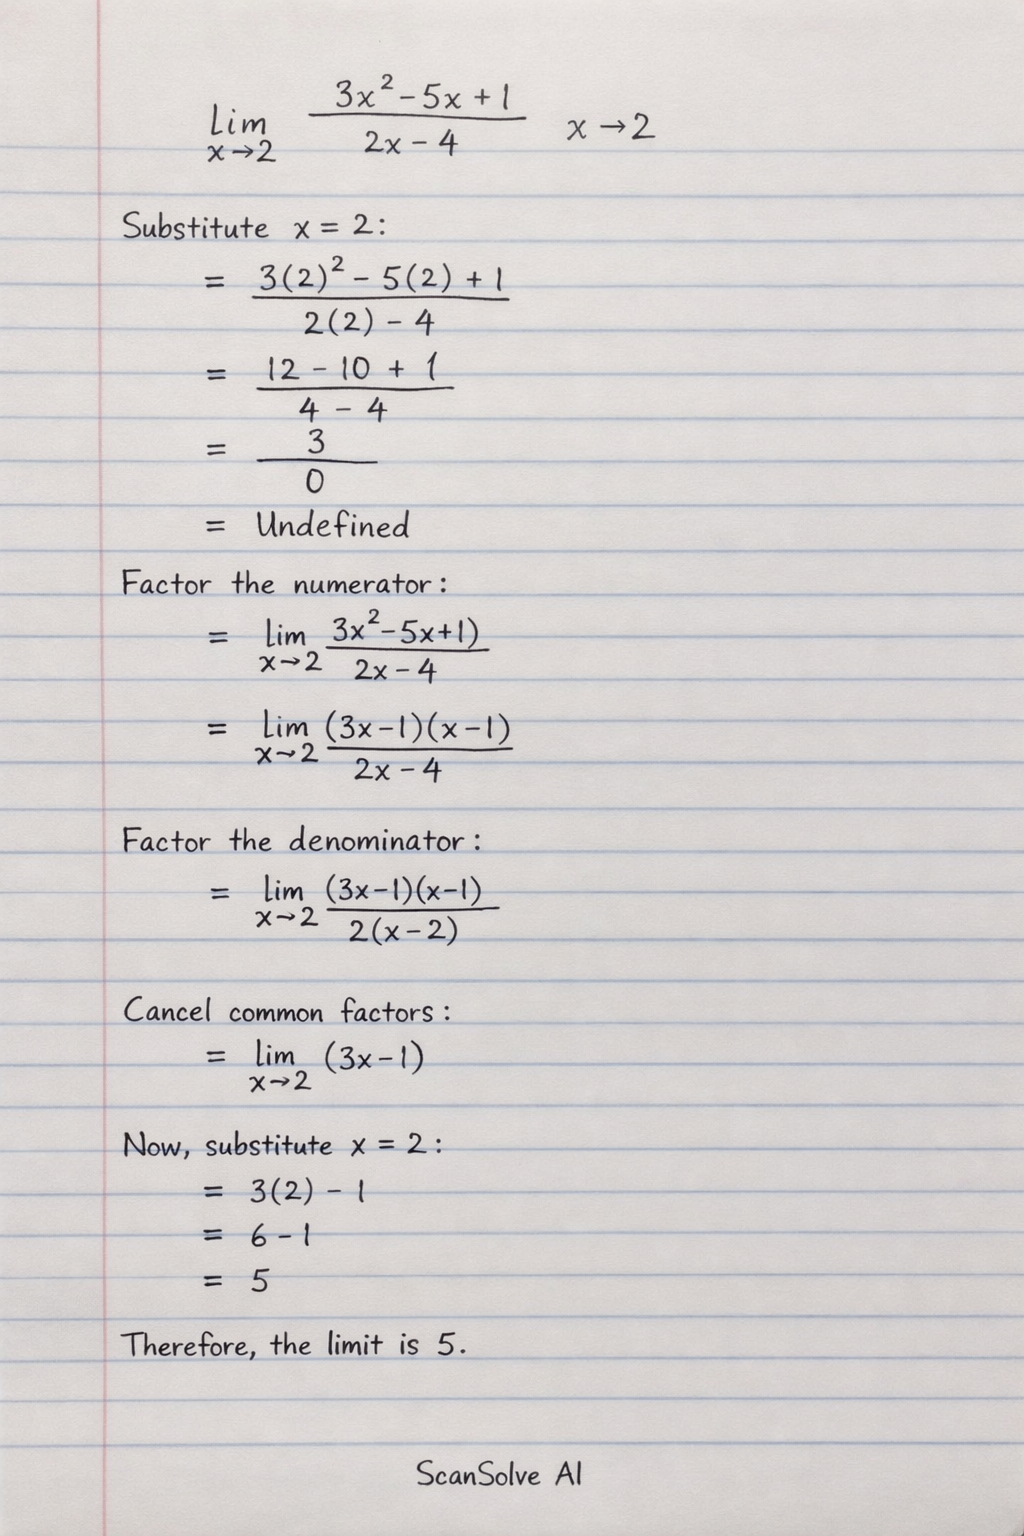 Lim x→2 (3x² − 5x + 1)/(2x − 4) x → 2
Substitute x = 2:
= (3(2)² − 5(2) + 1)/(2(2) − 4)
= (12 − 10 + 1)/(4 − 4)
= 3/0
= Undefined
Factor the numerator:
= lim x→2 3x²−5x+1)/(2x − 4)
= lim x→2 (3x−1)(x−1)/(2x − 4)
Factor the denominator:
= lim x→2 (3x−1)(x−1)/2(x−2)
Cancel common factors:
= lim x→2 (3x−1)
Now, substitute x = 2:
= 3(2) − 1
= 6 − 1
= 5
Therefore, the limit is 5.
ScanSolve AI